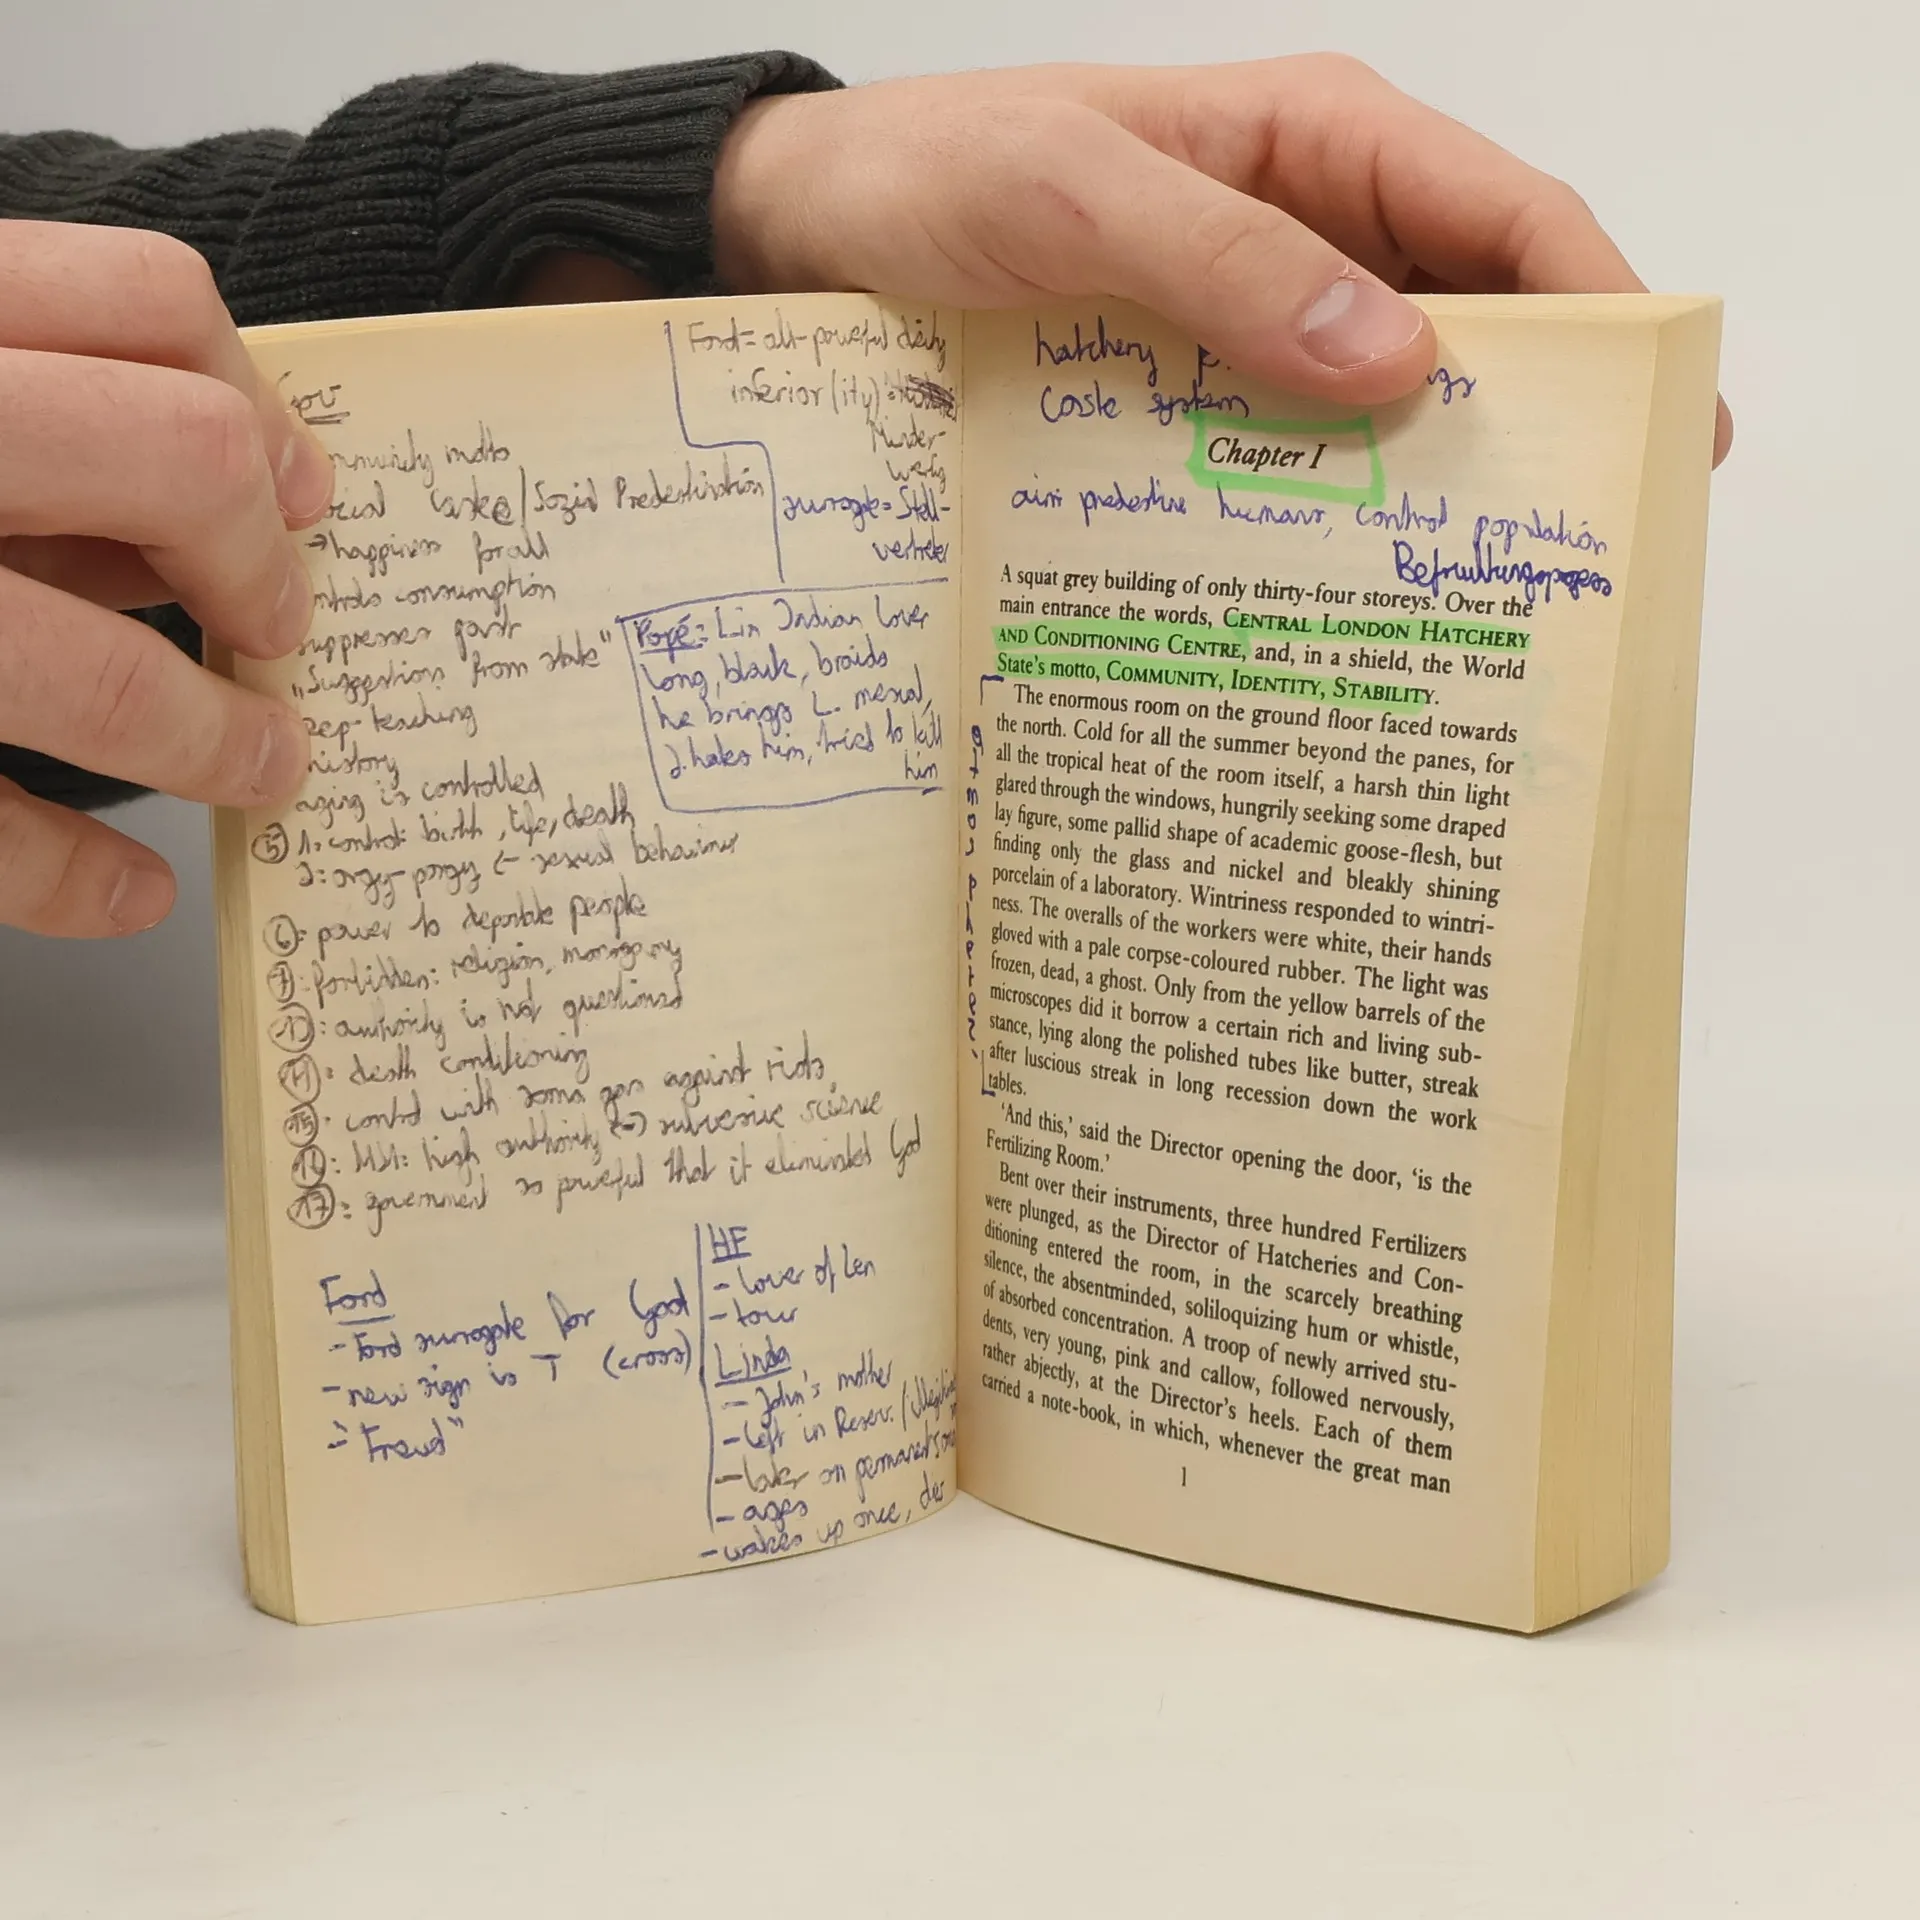 Gov
community motto
social caste / Sozial Predestination
→ happiness for all
controls consumption
suppresses past
„Suggestions from state"
sleep-teaching
history
aging is controlled
⑤ 1: control: birth, life, death
2: orgy-porgy ← sexual behaviour
⑥: power to deportate people
⑦: forbidden: religion, monogamy
authority is not questioned
death conditioning
⑮: control with soma gas against riots
⑯: MM: high authority (→) subversive science
⑰: government so powerful that it eliminated God
Ford = all-powerful deity
inferior (ity) =
Minder-
wertig
surrogate = Stell-
vertreter
Popé: Lin Indian lover
long, black, braids
he brings L. mescal,
J. hates him, tried to kill
him
Ford
- Ford surrogate for God
- new sign is T (cross)
- "Freud"
HF
- lover of Len
- tour
Linda
- John's mother
- left in Reserv. /
- later on permanent
- ages
- wakes up once, dies
hatchery
caste system
Chapter I
aim predestine humans, control population
Befruchtungsprozess
A squat grey building of only thirty-four storeys. Over the
main entrance the words, CENTRAL LONDON HATCHERY
AND CONDITIONING CENTRE, and, in a shield, the World
State's motto, COMMUNITY, IDENTITY, STABILITY.
The enormous room on the ground floor faced towards
the north. Cold for all the summer beyond the panes, for
all the tropical heat of the room itself, a harsh thin light
glared through the windows, hungrily seeking some draped
lay figure, some pallid shape of academic goose-flesh, but
finding only the glass and nickel and bleakly shining
porcelain of a laboratory. Wintriness responded to wintri-
ness. The overalls of the workers were white, their hands
gloved with a pale corpse-coloured rubber. The light was
frozen, dead, a ghost. Only from the yellow barrels of the
microscopes did it borrow a certain rich and living sub-
stance, lying along the polished tubes like butter, streak
after luscious streak in long recession down the work
tables.
'And this,' said the Director opening the door, 'is the
Fertilizing Room.'
Bent over their instruments, three hundred Fertilizers
were plunged, as the Director of Hatcheries and Con-
ditioning entered the room, in the scarcely breathing
silence, the absentminded, soliloquizing hum or whistle,
of absorbed concentration. A troop of newly arrived stu-
dents, very young, pink and callow, followed nervously,
rather abjectly, at the Director's heels. Each of them
carried a note-book, in which, whenever the great man
1